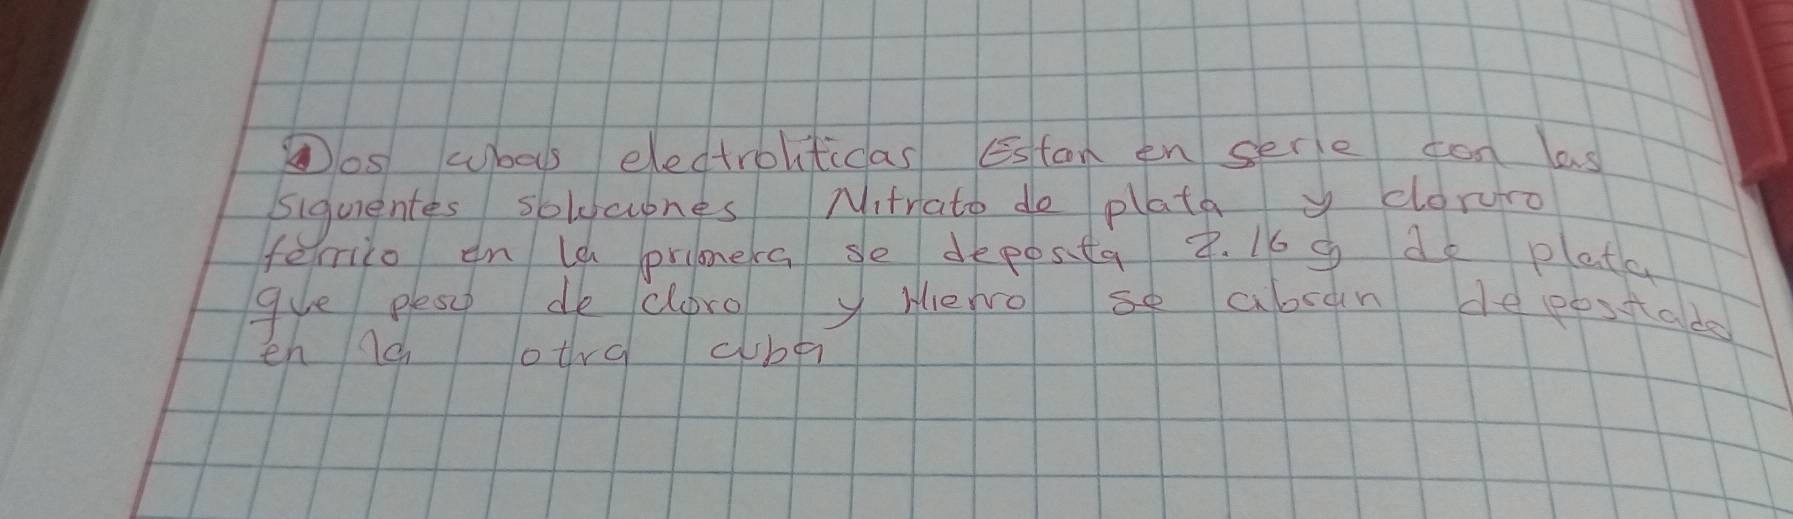 Dos cubas electroliticas Estan en serie con las
siguientes soluciones Nitrato de plata y cloruro
ferrico en la primera se deposita 2.16 g de plata
que peso de cloro y Hierro se abran depositado
en la otra cuba